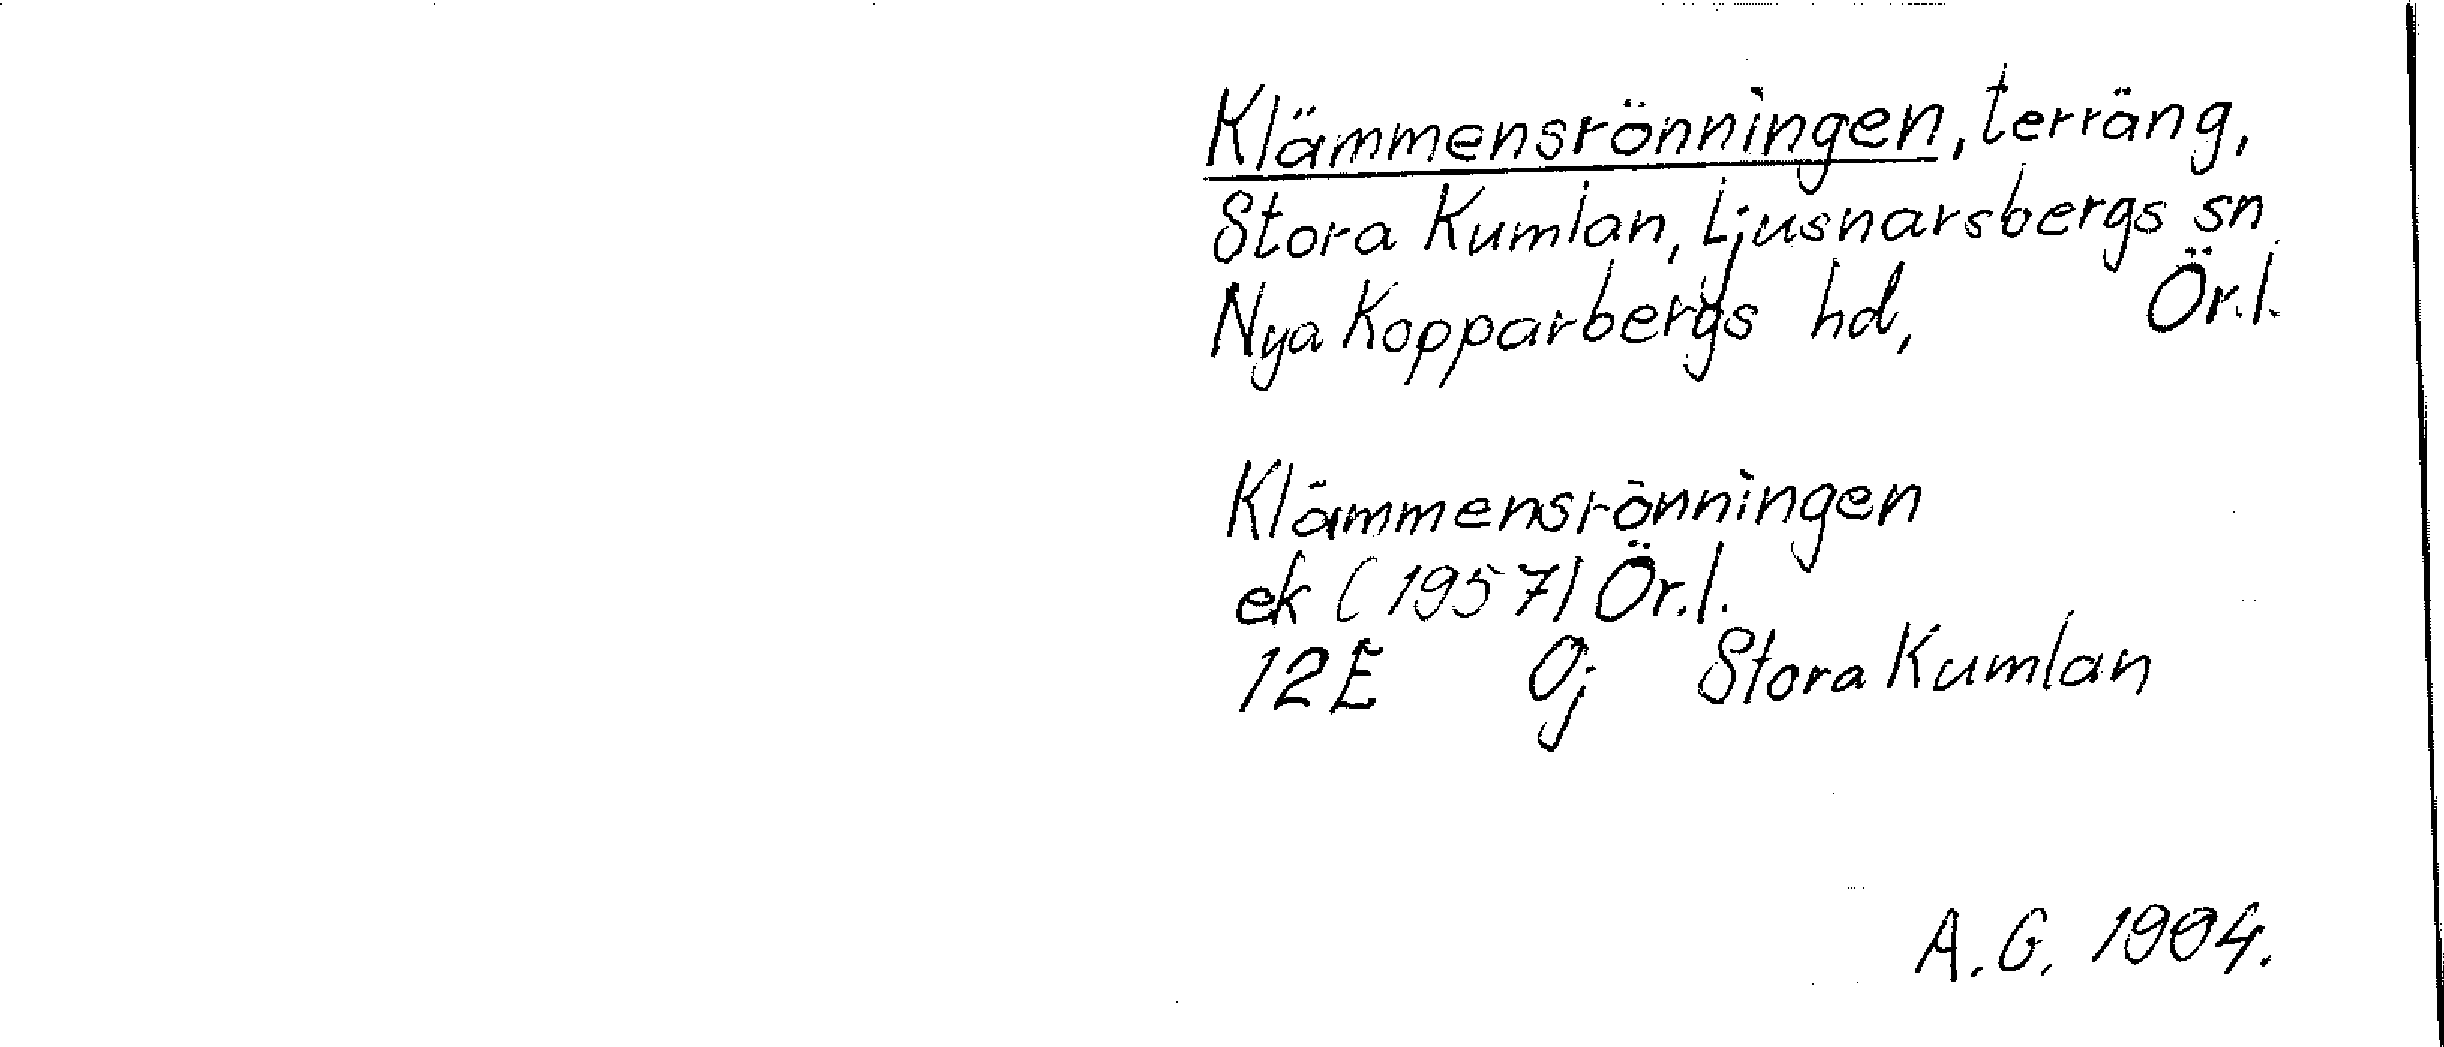 Klämmensrönningen, terräng,
Stora Kumlan, Ljusnarsbergs sn
Nya Kopparbergs hd, Ör.l.
Klämmensrönningen
ek (1957) Ör.l.
12E 0j Stora Kumlan
A.G. 1994.